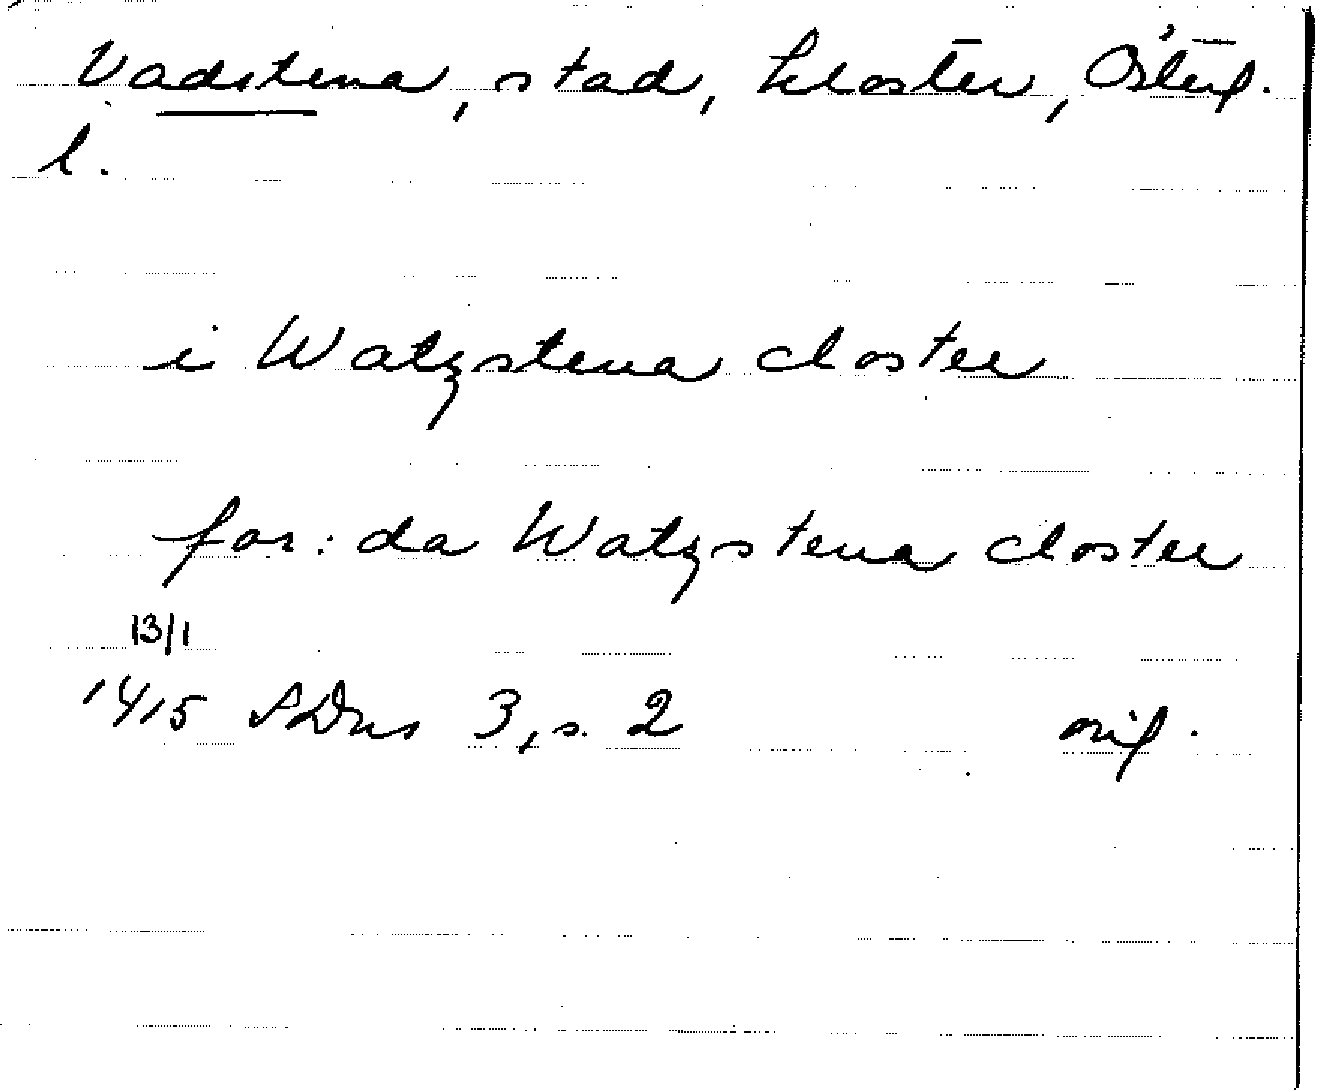 Vadstena, stad, kloster, Österg.
l.
i Watzstena closter
for: da Watzstena closter
13/1
1415 SDns 3, s. 2 orig.